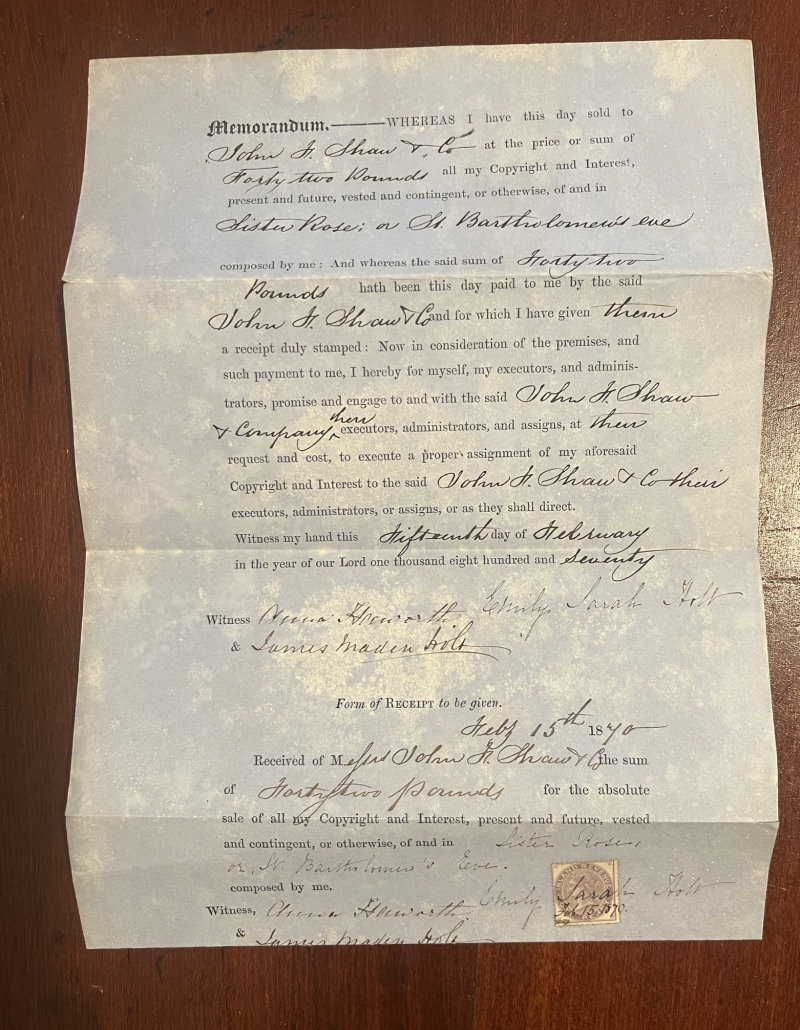 Memorandum.———WHEREAS I have this day sold to
John F. Shaw & Co at the price or sum of
Forty two Pounds all my Copyright and Interest,
present and future, vested and contingent, or otherwise, of and in
Sister Rose; or St. Bartholomew's eve
composed by me: And whereas the said sum of Forty two
Pounds hath been this day paid to me by the said
John F. Shaw & Co and for which I have given them
a receipt duly stamped: Now in consideration of the premises, and
such payment to me, I hereby for myself, my executors, and adminis-
trators, promise and engage to and with the said John F. Shaw
& Company their executors, administrators, and assigns, at their
request and cost, to execute a proper assignment of my aforesaid
Copyright and Interest to the said John F. Shaw & Co their
executors, administrators, or assigns, or as they shall direct.
Witness my hand this Fifteenth day of February
in the year of our Lord one thousand eight hundred and Seventy
Witness Anna Haworth Emily Sarah Holt
& James Maden Holt
Form of RECEIPT to be given.
Feby 15th 1870
Received of Messrs John F. Shaw & Co the sum
of Forty two pounds for the absolute
sale of all my Copyright and Interest, present and future, vested
and contingent, or otherwise, of and in Sister Rose,
or St. Bartholomew's Eve.
composed by me.
INLAND REVENUE
Witness, Anna Haworth Emily Sarah Holt
Feb. 15. 1870.
& James Maden Holt